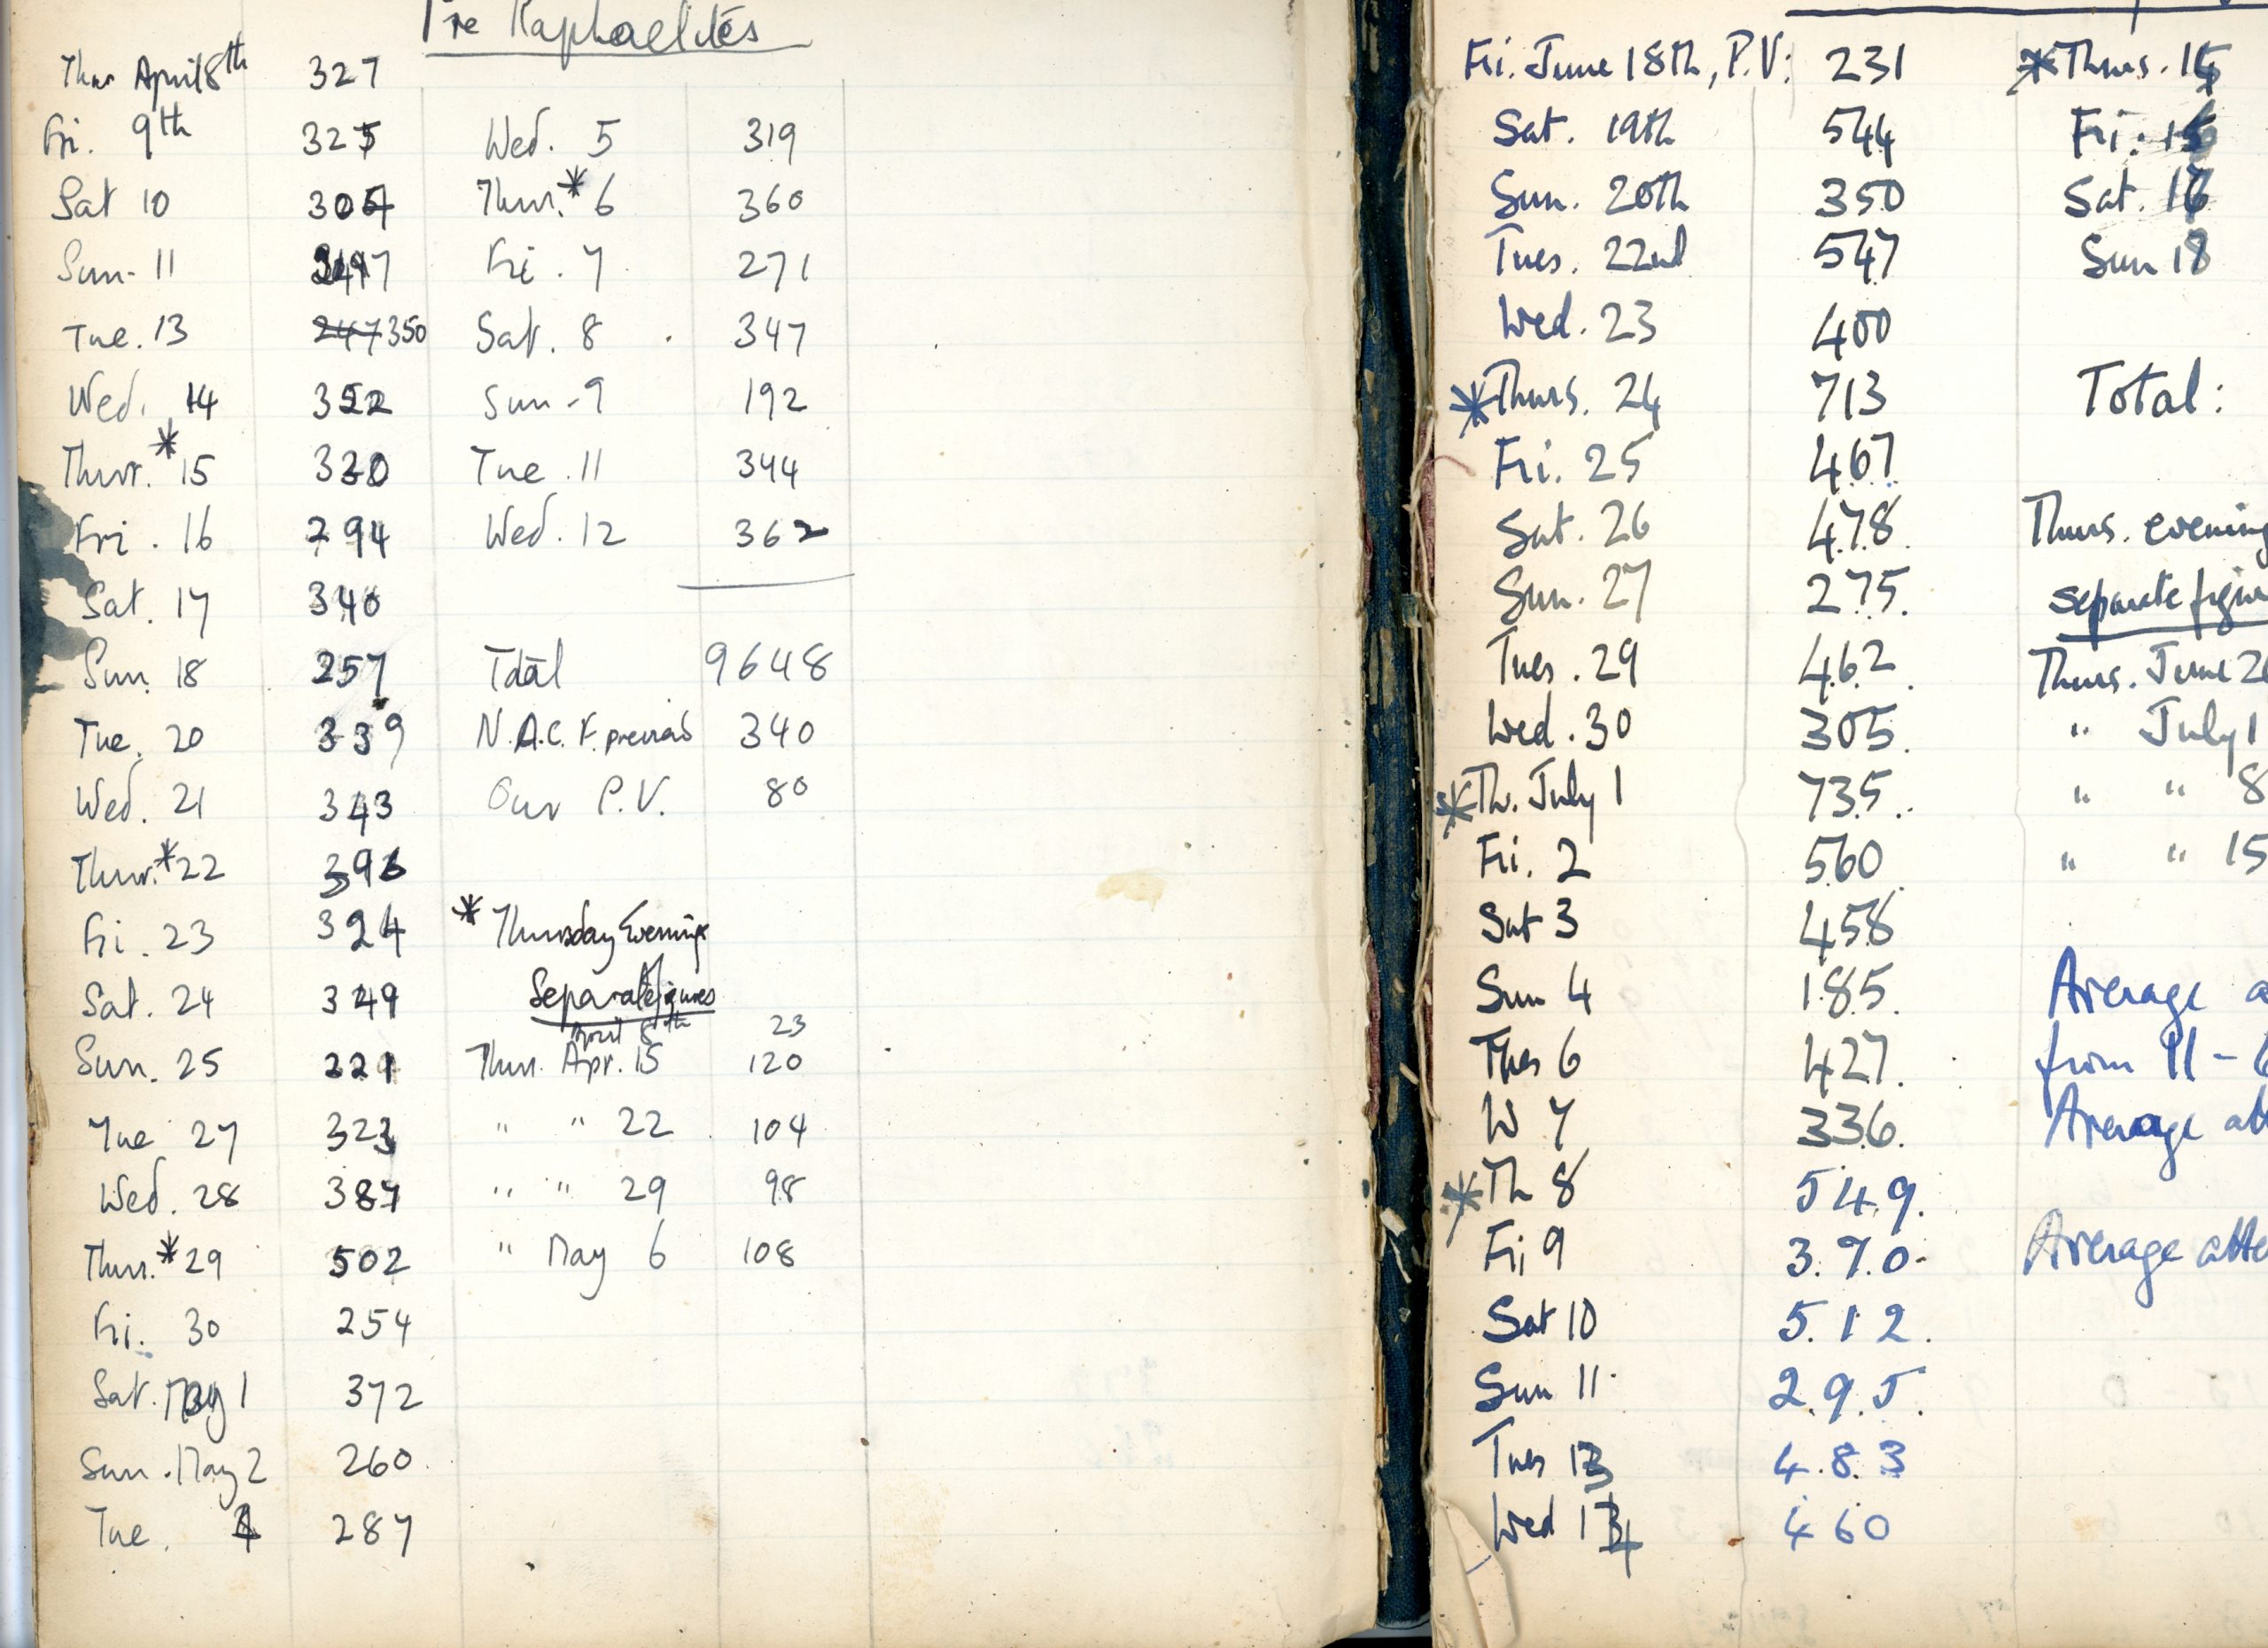 Pre Raphaelites
Thur April 8th 327
Fri. 9th 325
Sat 10 304
Sun. 11
Tue. 13 247 350
Wed. 14 352
Thur.* 15 320
Fri. 16 294
Sat. 17 340
Sun. 18 257
Tue. 20 339
Wed. 21 343
Thur.* 22 396
Fri. 23 324
Sat. 24 349
Sun. 25 221
Tue 27 323
Wed. 28 387
Thur.* 29 502
Fri. 30 254
Sat. May 1 372
Sun. May 2 260
Tue. 4 287
Wed. 5 319
Thur.* 6 360
Fri. 7 271
Sat. 8 347
Sun. 9 192
Tue. 11 344
Wed. 12 362
Total 9648
N.A.C.F. previous 340
Our P.V. 80
* Thursday Evenings
Separate figures
April 8th 23
Thur. Apr. 15 120
" " 22 104
" " 29 98
" May 6 108
Fri. June 18th, P.V: 231
Sat. 19th 544
Sun. 20th 350
Tues. 22nd 547
Wed. 23 400
*Thurs. 24 713
Fri. 25 467
Sat. 26 478.
Sun. 27 275.
Tues. 29 462.
Wed. 30 305.
*Th. July 1 735.
Fri. 2 560
Sat 3 458
Sun 4 185.
Tues 6 427.
W 7 336.
*Th 8 549.
Fri 9 390.
Sat 10 512.
Sun 11 295.
Tues 13 483
Wed 14 460
*Thurs. 15
Fri. 16
Sat. 17
Sun 18
Total:
Thurs. evening
separate figur
Thurs. June 2
" July 1
" " 8
" " 15
Average a
from 11 - 6
Average att
Average atte